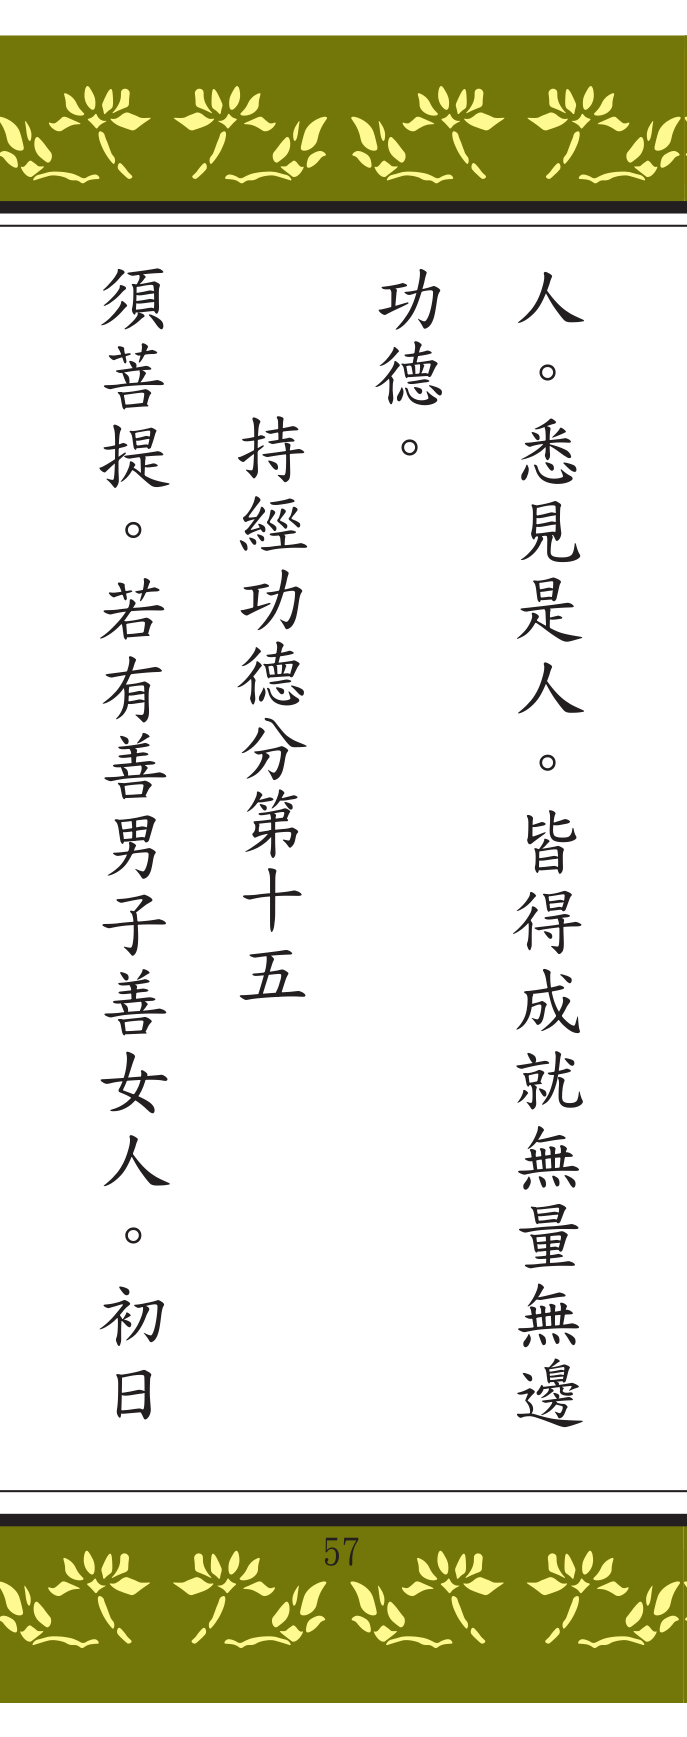 人。悉見是人。皆得成就無量無邊
功德。
持經功德分第十五
須菩提。若有善男子善女人。初日
57